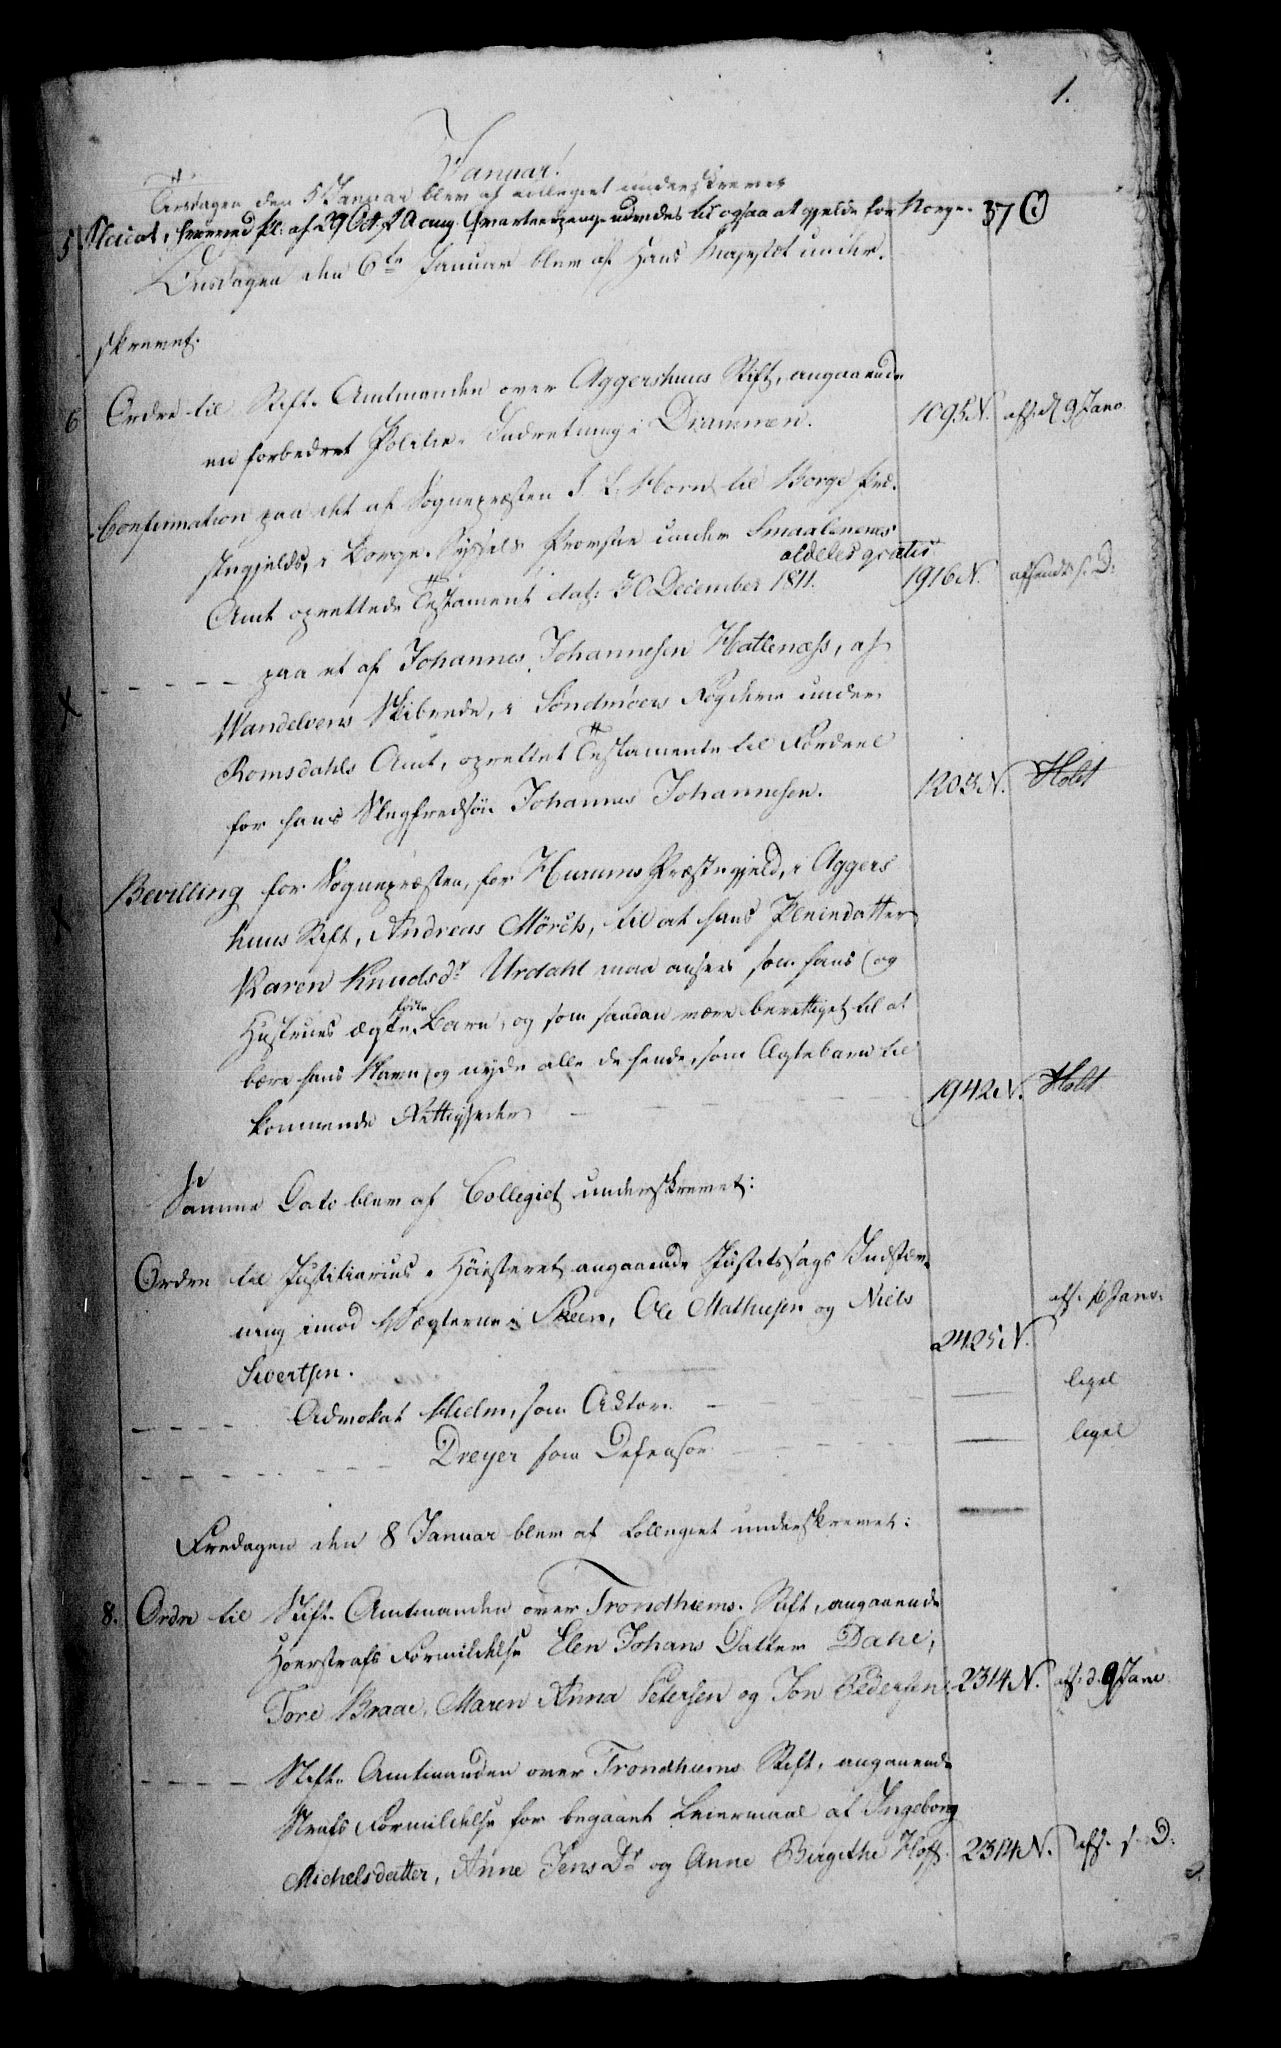 1.
Januar.
Tirsdagen den 5 Januar blev af Collegiet underskrevet
5 Placat, hvorved Pl. af 29 Oct. f. A. ang. Qvarteerpenge udvides til ogsaa at gjelde for Norge. 37 C.
Onsdagen den 6te Januar blev af Hans Majestæt under-
skrevet.
6 Ordre til Stift-Amtmanden over Aggershuus Stift, angaaende
en forbedret Politie-Indretning i Drammen. 1095 N. afs. d. 9 Janr.
Confirmation paa det af Sognepræsten I. L. Horn til Borge Præ-
stegjelds, i Borge-Syssels Provstie under Smaalenenes
aldeles gratis
Amt oprettede Testament dat: 30 December 1811. 1916 N. afsendt s. D.
- - - - - paa et af Johannes Johannesen Hatlenæss, af
Wandelvens Skibrede, i Søndmøers Fogderie under
Romsdahls Amt, oprettet Testamente til Fordeel
for hans Slegfredsøn Johannes Johannesen. 1203 N. Holst
Bevilling for Sognepræsten, for Hurums Præstegjeld, i Aggers
huus Stift, Andreas Mörch, til at hans Pleiedatter
Karen Knudsdr Urdahl maa ansees som hans (og
Hustrues ægte fødte Barn, og som saadan være berettiget til at
bære hans Navn) og nyde alle de hende, som Ægtebarn til
kommende Rettigheder 1942 N. Holst
Samme Dato blev af Collegiet underskrevet:
Ordre til Justitiarius i Høiesteret angaaende Justitssags Indstæv-
ning imod Vægterne i Skeen, Ole Mathiesen og Niels
Sivertsen. 2425 N. afs. Janr.
- - - - Advokat Hielm, som Aktor - ligel
- - - - - - Dreyer som Defensor ligel
Fredagen den 8 Januar blev af Collegiet underskrevet:
8. Ordre til Stift-Amtmanden over Trondhiems-Stift, angaaende
Hoerstrafs Formildelse Elen Johans Datter Dahl,
Tore Braae, Maren Anna Petersen og Jon Pedersen. 2314 N. afs. d. 9 Janr.
- - - - Stift-Amtmanden over Trondhiems Stift, angaaende
Straffs Formildelse for begaaet Leiermaal af Ingeborg
Michelsdatter, Anne Jens Dr og Anne Birgithe Hoff. 2314 N. afs. s. D.